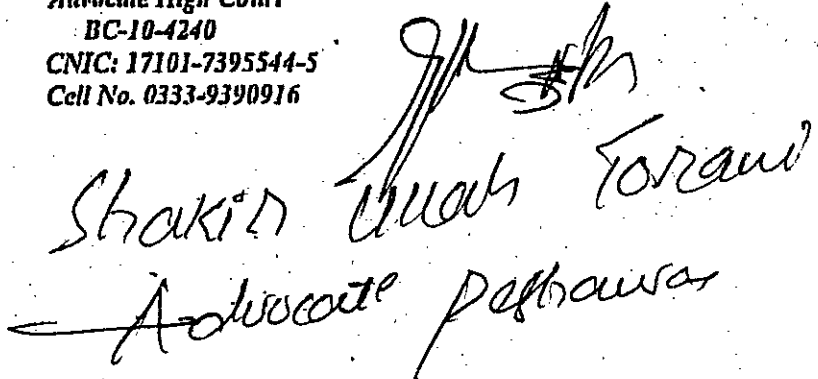 Advocate High Court
BC-10-4240
CNIC: 17101-7395544-5
Cell No. 0333-9390916
Shakir Ullah Torani
Advocate Peshawar